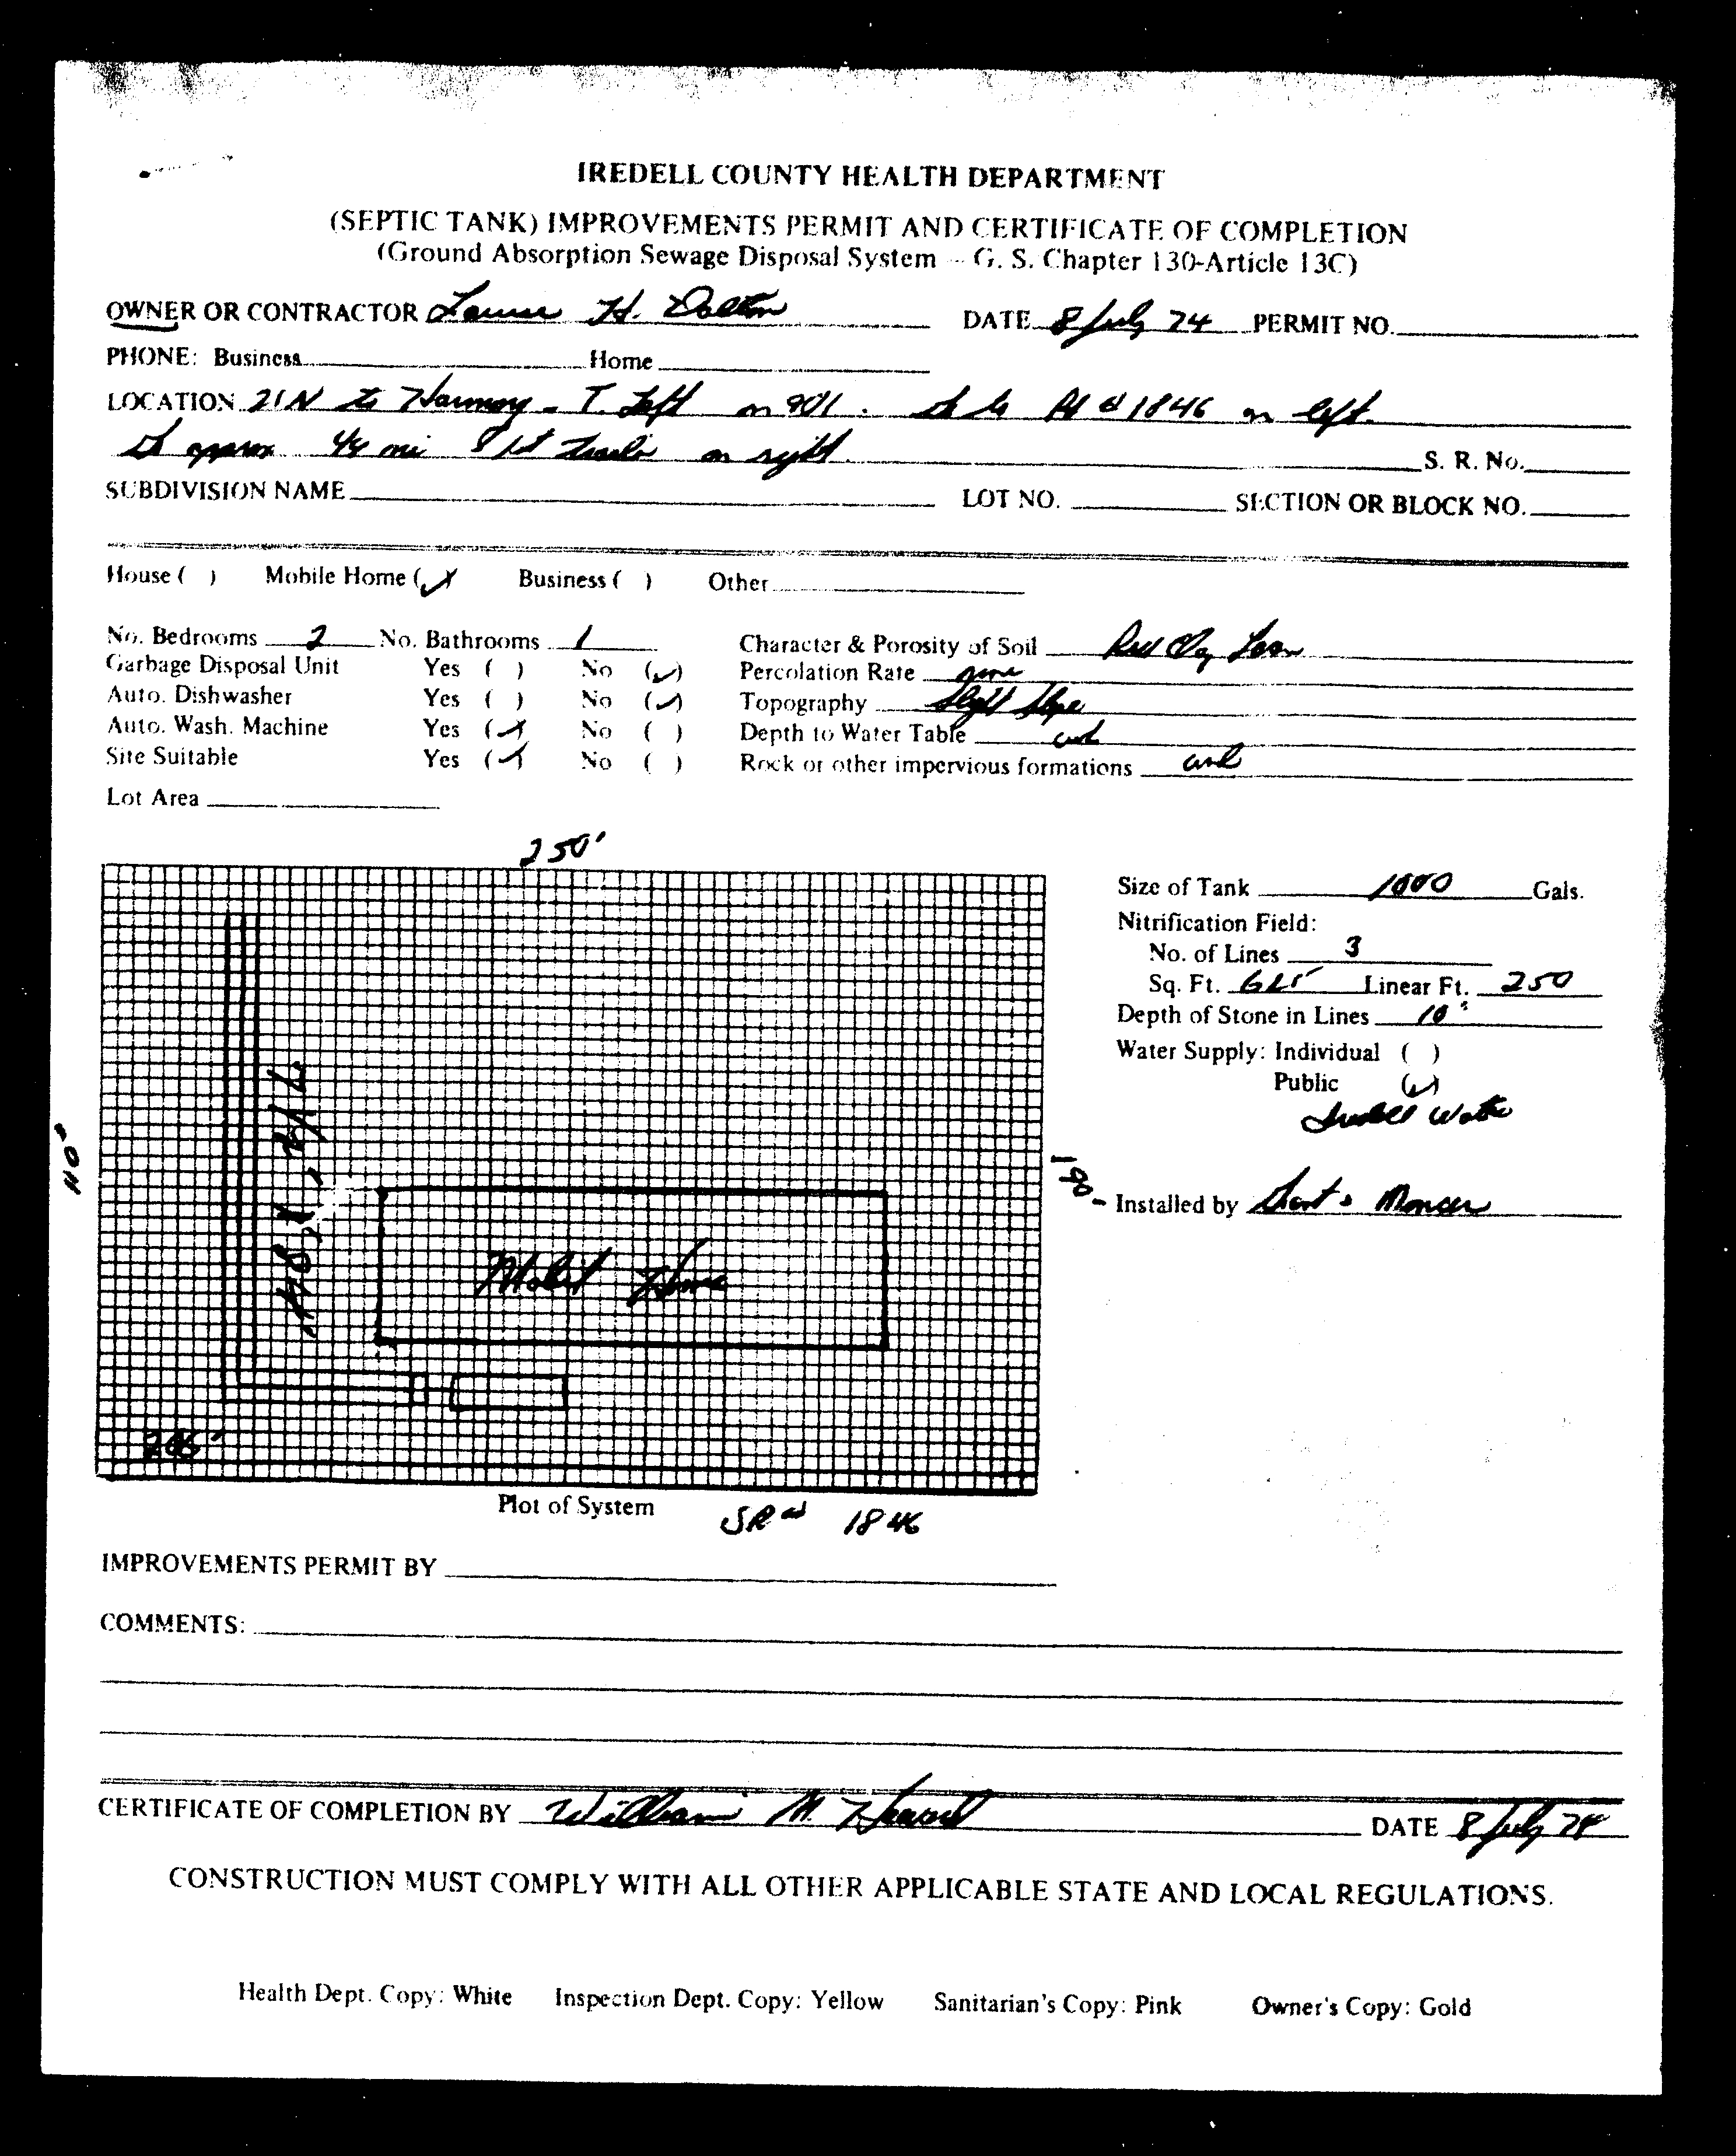 IREDELL COUNTY HEALTH DEPARTMENT
(SEPTIC TANK) IMPROVEMENTS PERMIT AND CERTIFICATE OF COMPLETION
(Ground Absorption Sewage Disposal System - G. S. Chapter 130-Article 13C)
OWNER OR CONTRACTOR H. Dalton DATE 8 July 74 PERMIT NO.
PHONE: Business Home
LOCATION 21 N to Harmony - T. Left on 901. to Rd # 1846 on left.
approx mi 1st trailer on right. S. R. No.
SUBDIVISION NAME LOT NO. SECTION OR BLOCK NO.
House ( ) Mobile Home (✓) Business ( ) Other
No. Bedrooms 2 No. Bathrooms 1 Character & Porosity of Soil Red Clay Loam
Garbage Disposal Unit Yes ( ) No (✓) Percolation Rate
Auto. Dishwasher Yes ( ) No (✓) Topography Slight Slope
Auto. Wash. Machine Yes (✓) No ( ) Depth to Water Table
Site Suitable Yes (✓) No ( ) Rock or other impervious formations
Lot Area
250'
Size of Tank 1000 Gals.
Nitrification Field:
No. of Lines 3
Sq. Ft. Linear Ft. 250
Depth of Stone in Lines 10"
Water Supply: Individual ( )
Public (✓)
Iredell Water
110'
190'
Installed by
Mobil Home
Plot of System SR # 1846
IMPROVEMENTS PERMIT BY
COMMENTS:
CERTIFICATE OF COMPLETION BY William M. DATE 8 July 74
CONSTRUCTION MUST COMPLY WITH ALL OTHER APPLICABLE STATE AND LOCAL REGULATIONS.
Health Dept. Copy: White Inspection Dept. Copy: Yellow Sanitarian's Copy: Pink Owner's Copy: Gold